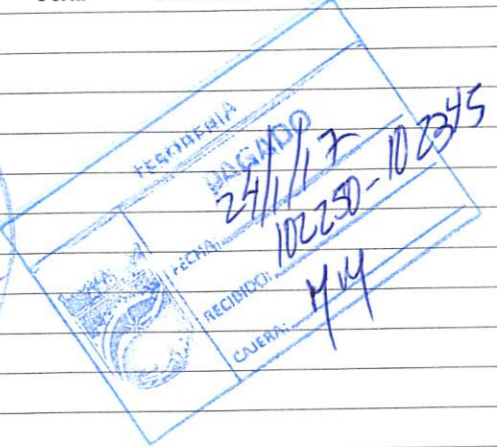 TESORERIA
PAGADO
FECHA: 24/1/17
RECIBIDO: 102250-102345
CAJERA: